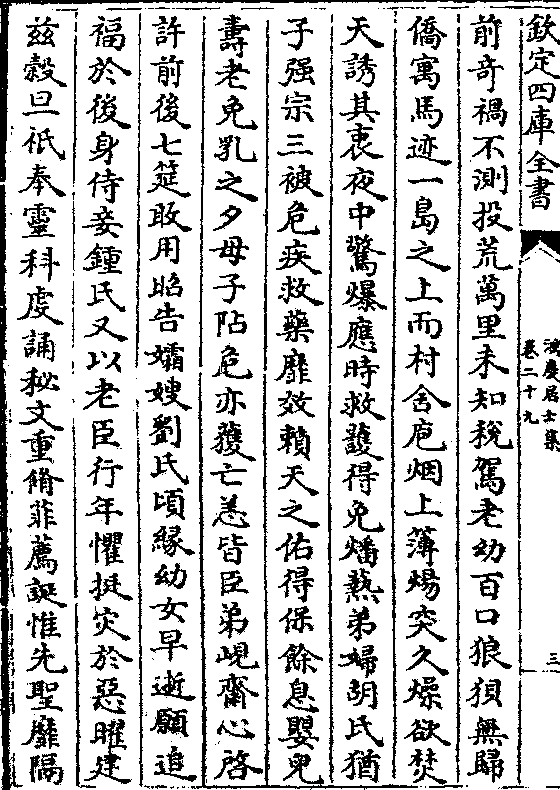 欽定四庫全書
卷二十九
三
前奇禍不測投荒萬里未知稅駕老幼百口狼狽無歸
僑寓馬迹一島之上而村舍庖烟上薄煬突久燥欲焚
天誘其衷夜中驚爆應時救護得免燔爇弟婦胡氏猶
子强宗三被危疾救藥靡效賴天之佑得保餘息嬰兒
壽老免乳之夕母子阽危亦獲亡恙皆臣弟峴齋心啓
許前後七筵敢用昭告孀嫂劉氏頃緣幼女早逝願追
福於後身侍妾鍾氏又以老臣行年懼挻災於惡曜建
兹穀旦祇奉靈科虔誦秘文重脩菲薦誕惟先聖靡隔